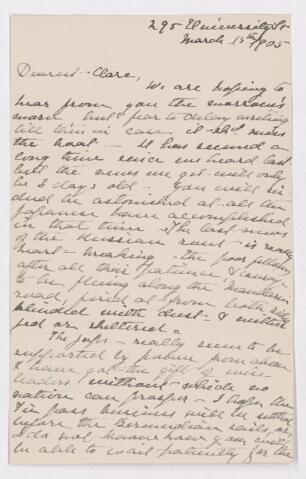 295 University St
March 13th 1905
Dearest Clare,
We are hoping to
hear from you the morrow's
morn but fear to delay writing
till then in case it shd miss
the boat - It has seemed a
long time since we heard last
but the news we get will only
be 3 days old - You will in-
deed be astonished at all the
Japanese have accomplished
in that time & the last news
of the Russian rout - is really
heart-breaking - the poor
after all their patience &
to be flung along the Mandarin
road, fired at from both sides
blinded with dust - & neither
fed or sheltered -
The Japs - really seem to be
supported by power from above
& have got the gift of wise
leaders without which no
nation can prosper - I hope the
Tin pass business will be settled
before the Bermudian sails, as
I do not know how you will
be able to wait patiently for the